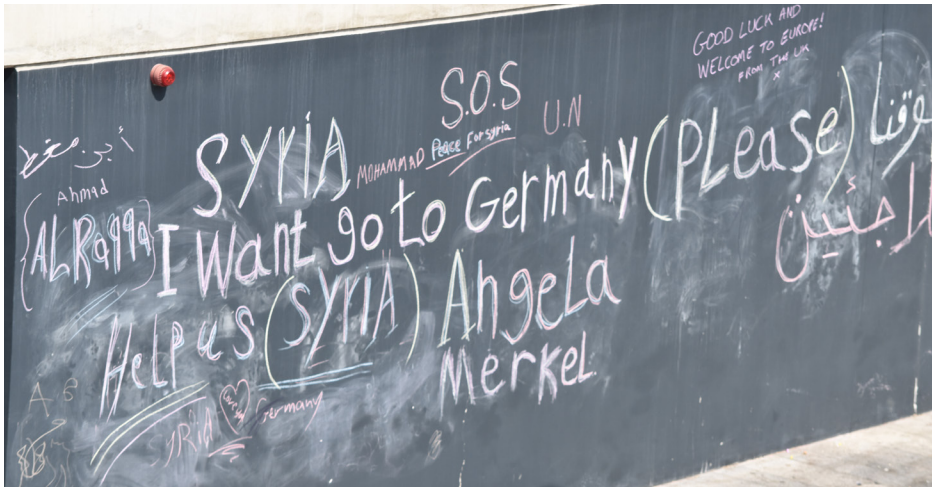 GOOD LUCK AND
WELCOME TO EUROPE!
FROM THE UK
x
S.O.S
U.N
SYRIA
MOHAMMAD Peace For syria
Ahmad
(ALRaqqa)
I Want go to Germany (PLease)
Help us (SYRIA) Angela
Merkel
لاجئين
Germany
A